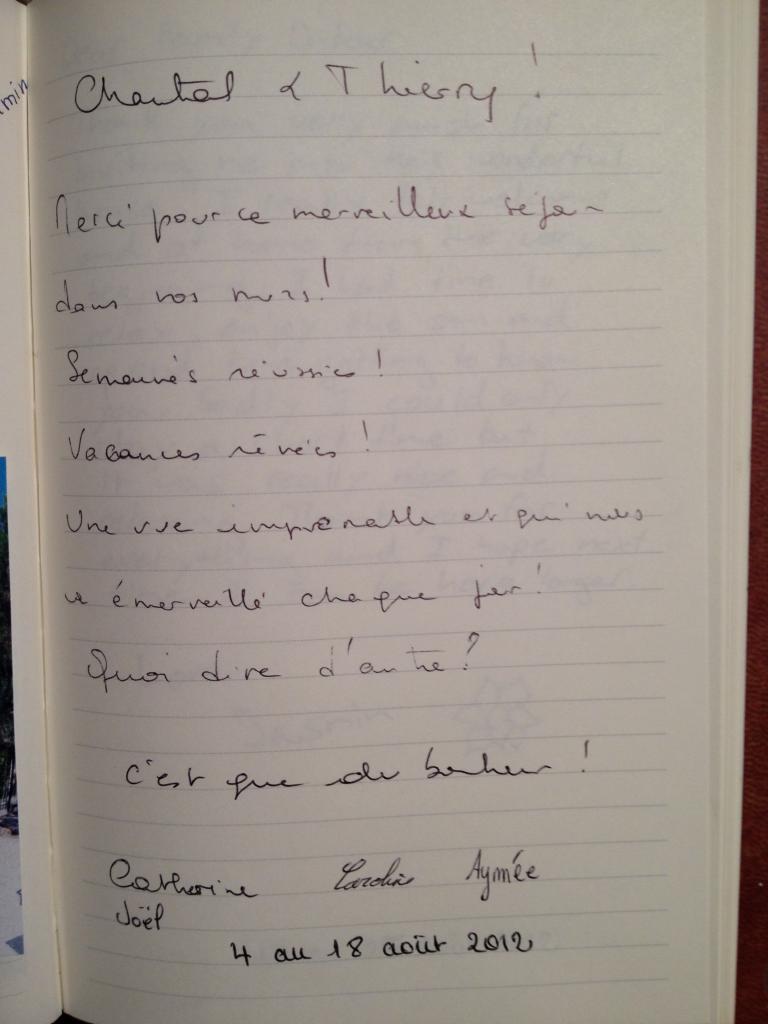 Chantal & Thierry !
Merci pour ce merveilleux séjour
dans vos murs !
Semaines réussies !
Vacances rêvées !
Une vue imprenable et qui nous
a émerveillé chaque jour !
Quoi dire d'autre ?
C'est que du bonheur !
Catherine Caroline Aymée
Joël
4 au 18 août 2012
min